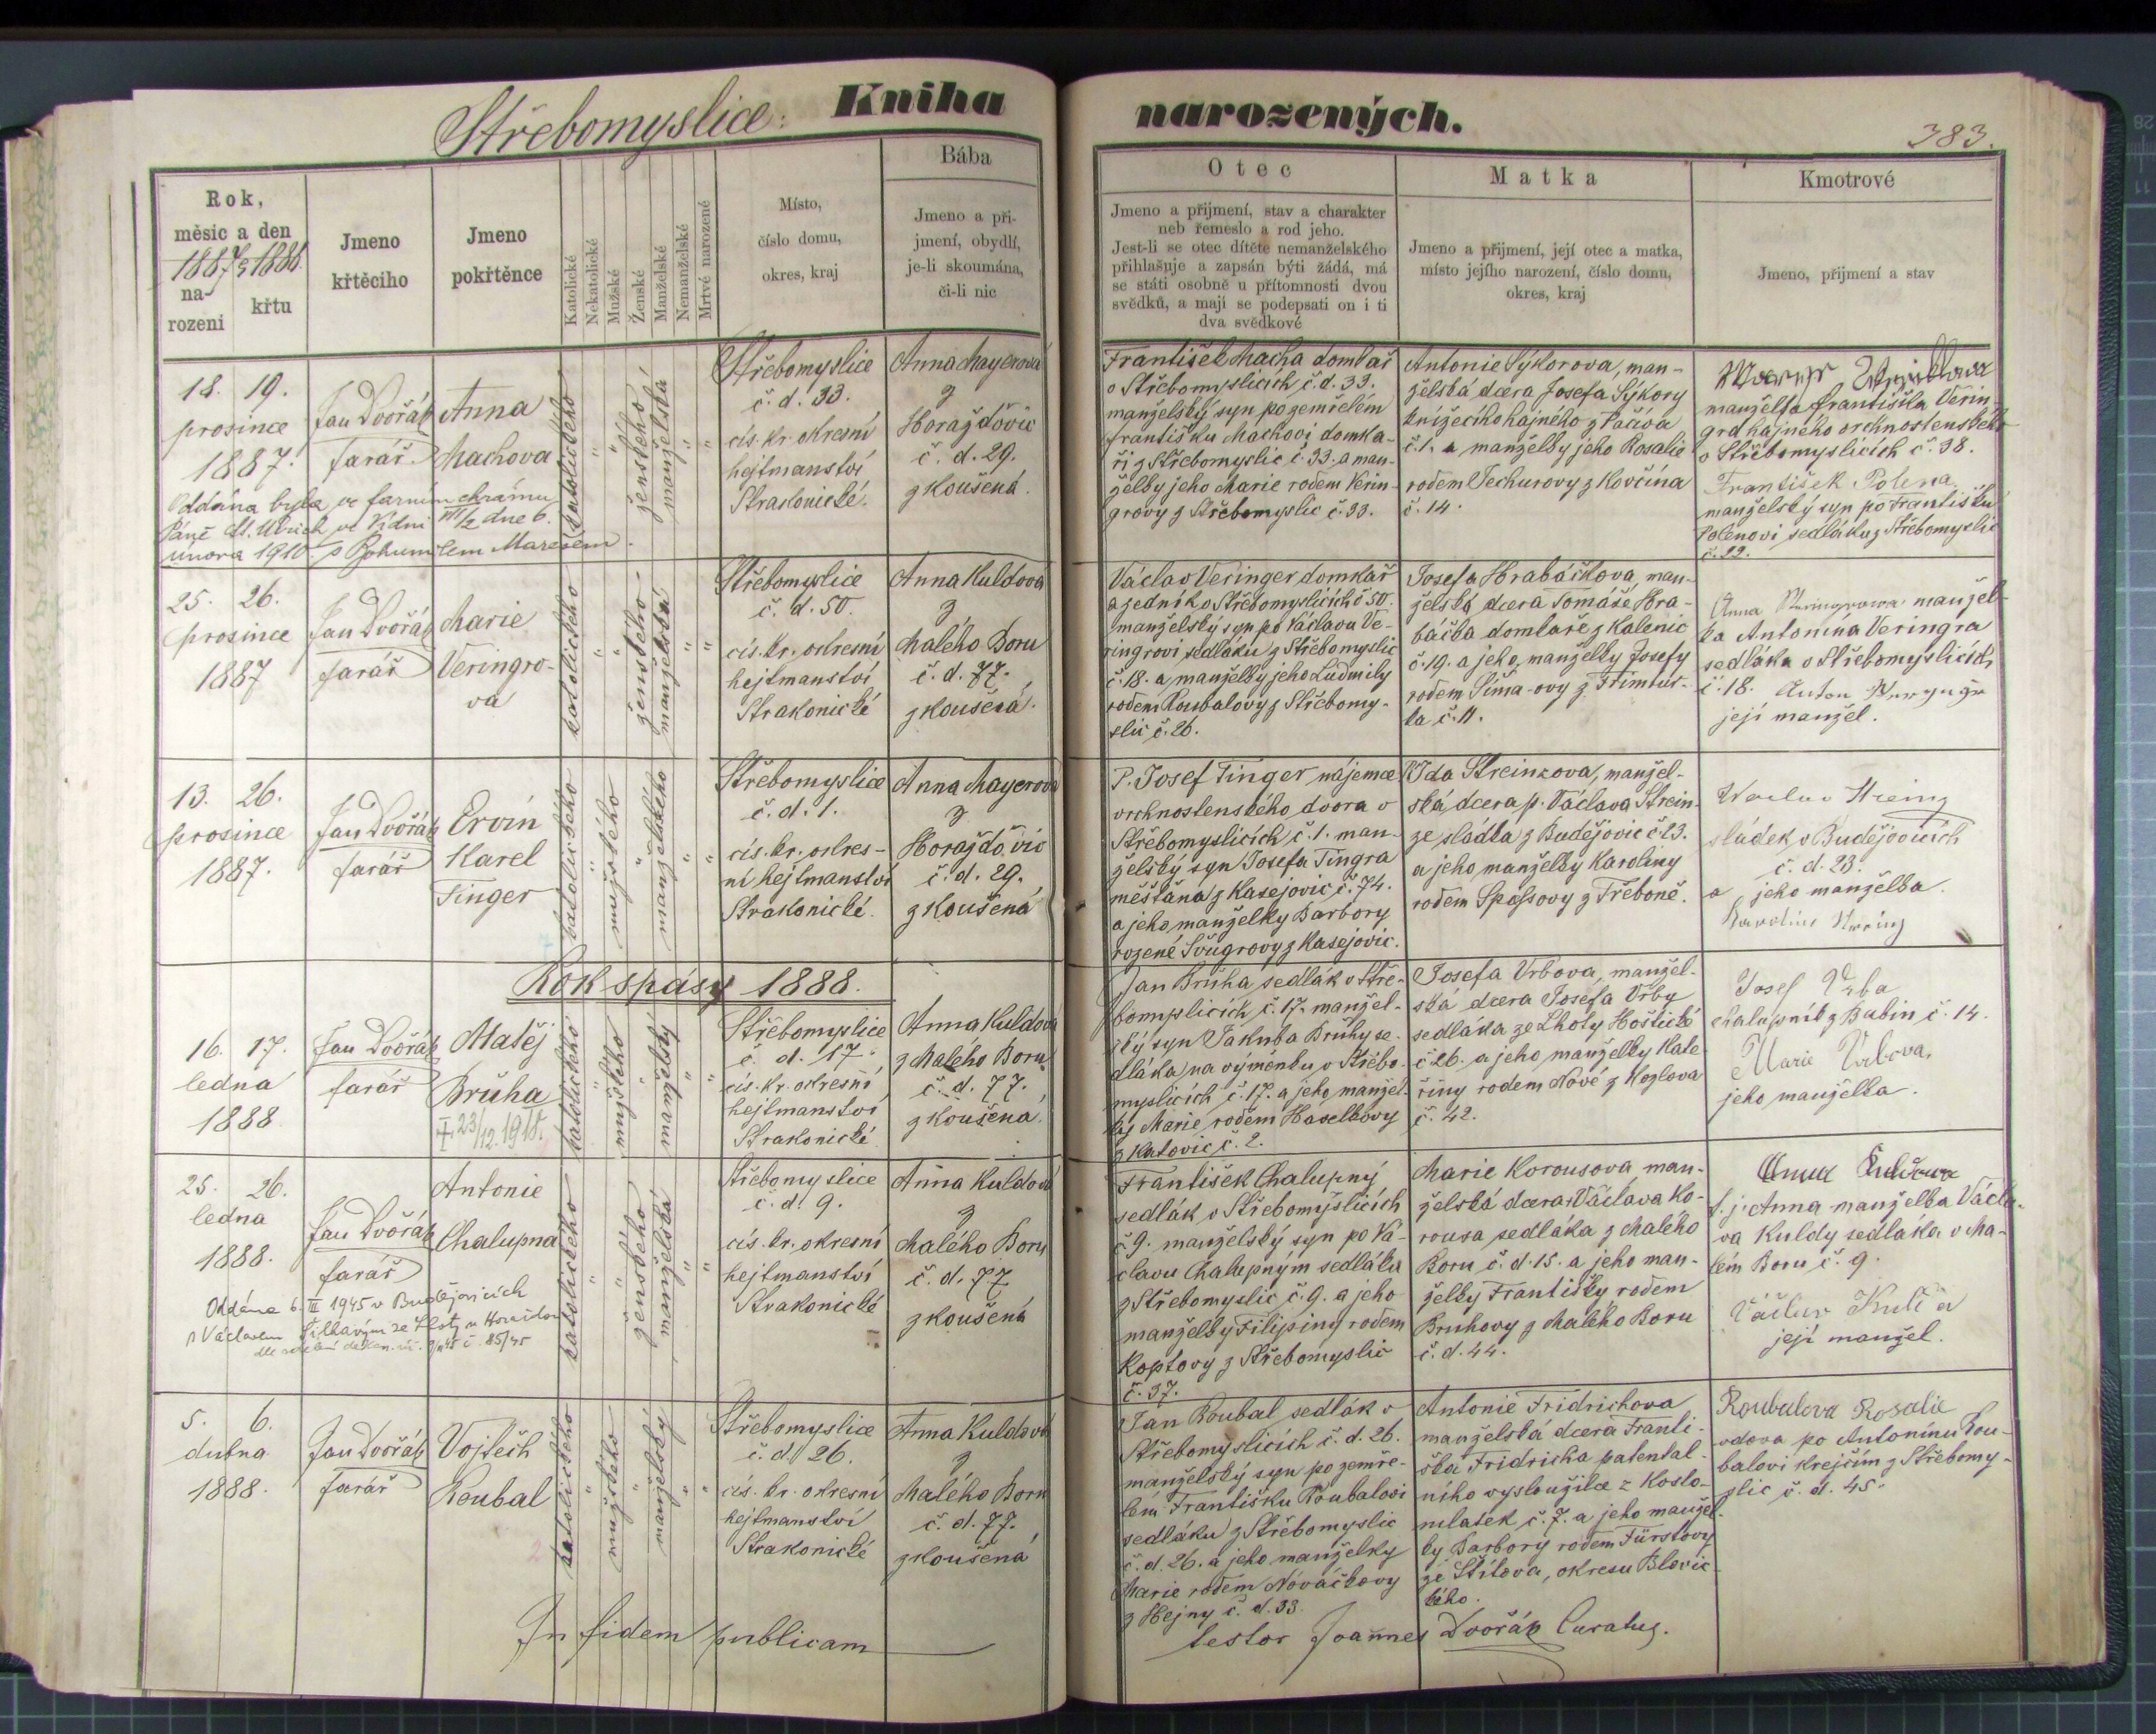 Střebomyslice. Kniha narozených.
383.
Rok,
měsíc a den
1887 & 1888.
na-
rozeni
křtu
Jmeno
křtěcího
Jmeno
pokřtěnce
Katolické
Nekatolické
Mužské
Ženské
Manželské
Nemanželské
Mrtvě narozené
Místo,
číslo domu,
okres, kraj
Bába
Jmeno a při-
jmení, obydlí,
je-li skoumána,
či-li nic
Otec
Jmeno a přijmení, stav a charakter
neb řemeslo a rod jeho.
Jest-li se otec dítěte nemanželského
přihlašuje a zapsán býti žádá, má
se státi osobně u přítomnosti dvou
svědků, a mají se podepsati on i ti
dva svědkové
Matka
Jmeno a přijmení, její otec a matka,
místo jejího narození, číslo domu,
okres, kraj
Kmotrové
Jmeno, přijmení a stav
18. 19.
prosince
1887.
Jan Dvořák
farář
Anna
Machova
Oddána byla ve farním chrámu
Páně St. Ulrich ve Vídni VII/2 dne 6.
února 1910 s Bohumilem Marešem.
katolického
"
"
ženského
manželská
"
"
Střebomyslice
č. d. 33.
cís. kr. okresní
hejtmanství
Strakonické.
Anna Mayerova
z
Horažďovic
č. d. 29.
zkoušená.
František Macha domkař
v Střebomyslicích č. d. 33.
manželský syn po zemřelém
Františku Machovi domka-
ři z Střebomyslic č. 33. a man-
želky jeho Marie rodem Verin-
grovy z Střebomyslic č. 33.
Antonie Sýkorova, man-
želská dcera Josefa Sýkory
knížecího hajného z Páčiva
č. 1. a manželky jeho Rosalie
rodem Techurovy z Kovčína
č. 14.
manželka Františka Verin-
gra hajného vrchnostenského
v Střebomyslicích č. 38.
František Polena
manželský syn po Františku
Polenovi sedláku z Střebomyslic
č. 22.
25. 26.
prosince
1887
Jan Dvořák
farář
Marie
Veringro-
vá
katolického
"
"
ženského
manželská
"
"
Střebomyslice
č. d. 50.
cís. kr. okresní
hejtmanství
Strakonické
Anna Kuldova
z
Malého Boru
č. d. 77.
zkoušená.
Václav Veringer domkář
a zedník v Střebomyslicích č 50.
manželský syn po Václavu Ve-
ringrovi sedláku z Střebomyslic
č. 18. a manželky jeho Ludmily
rodem Roubalovy z Střebomy-
slic č. 26.
Josefa Hrabáčkova, man-
želská dcera Tomáše Hra-
báčka domkaře z Kalenic
č. 19. a jeho manželky Josefy
rodem Šíma-ovy z Frimbur-
ka č. 11.
Anna Veringrowa manžel-
ka Antonína Veringra
sedláka v Střebomyslicích
č. 18. Anton
její manžel.
13. 26.
prosince
1887.
Jan Dvořák
farář
Ervín
Karel
Finger
katolického
"
mužského
"
manželského
"
"
Střebomyslice
č. d. 1.
cís. kr. okres-
ní hejtmanství
Strakonické.
Anna Mayerova
z
Horažďovic
č. d. 29.
zkoušená
P. Josef Finger nájemce
vrchnostenského dvora v
Střebomyslicích č. 1. man-
želský syn Josefa Fingra
měšťana z Kasejovic č. 74.
a jeho manželky Barbory
rozené Švugrovy z Kasejovic.
Ida Streinzova, manžel-
ská dcera p. Václava Strein-
ze sládka z Budějovic č 23.
a jeho manželky Karoliny
rodem Spossovy z Třeboně.
sládek v Budějovicích
č. d. 23.
a jeho manželka.
Rok spásy 1888.
16. 17.
ledna
1888
Jan Dvořák
farář
Matěj
Brůha
† 23/12. 1918.
katolického
"
mužského
"
manželský
"
"
Střebomyslice
č. d. 17.
cís. kr. okresní
hejtmanství
Strakonické
Anna Kuldova
z Malého Boru
č. d. 77.
zkoušená.
Jan Brůha sedlák v Stře-
bomyslicích č. 17. manžel-
ský syn Jakuba Brůhy se-
dláka na výměnku v Střebo-
myslicích č. 17. a jeho manžel-
ky Marie rodem Haselkovy
z Katovic č. 2.
Josefa Vrbova, manžel-
ská dcera Josefa Vrby
sedláka ze Lhoty Hoštické
č 26. a jeho manželky Kate-
řiny rodem Nové z Kozlova
č. 42.
Josef Vrba
chalupník z Babin č. 14.
Marie Vrbova,
jeho manželka.
25. 26.
ledna
1888.
Jan Dvořák
farář
Antonie
Chalupna
Oddána 6. III 1945 v Budějovicích
s Václavem Šilhavým ze
katolického
"
"
ženského
manželská
"
"
Střebomyslice
č. d. 9.
cís. kr. okresní
hejtmanství
Strakonické
Anna Kuldova
z
Malého Boru
č. d. 77
zkoušená
František Chalupný
sedlák v Střebomyslicích
č 9. manželský syn po Vá-
clavu Chalupným sedláku
z Střebomyslic č. 9. a jeho
manželky Filipiny rodem
Koptovy z Střebomyslic
č. 37.
Marie Korousova man-
želská dcera Václava Ko-
rousa sedláka z Malého
Boru č. d. 15. a jeho man-
želky Františky rodem
Brůhovy z Malého Boru
č. d. 44.
Anna Kuldowa
t. j. Anna manželka Václa-
va Kuldy sedláka v Ma-
lém Boru č. 9.
Václav Kulda
její manžel.
5. 6.
dubna
1888.
Jan Dvořák
farář
Vojtěch
Roubal
katolického
"
mužského
"
manželský
"
"
Střebomyslice
č. d. 26.
cís. kr. okresní
hejtmanství
Strakonické
Anna Kuldova
z
Malého Boru
č. d. 77.
zkoušená
Jan Roubal sedlák v
Střebomyslicích č. d. 26.
manželský syn po zemře-
lém Františku Roubalovi
sedláku z Střebomyslic
č. d. 26. a jeho manželky
Marie rodem Nováčkovy
z Hejny č. d. 33.
Antonie Fridrichova
manželská dcera Franti-
ška Fridricha patental-
ního vysloužilce z Koslo-
mlátek č. 7. a jeho manžel-
ky Barbory rodem Fürstovy
ze Štítova, okresu Blovic-
kého.
Roubalova Rosalie
vdova po Antonínu Rou-
balovi krejčím z Střebomy-
slic č. d. 45.
In fidem publicam
testor Joannes Dvořák Curatus.